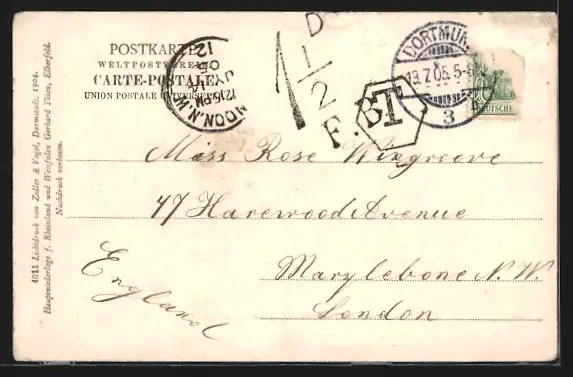 POSTKARTE
WELTPOSTVEREIN
CARTE-POSTALE
UNION POSTALE UNIVERSELLE
LONDON.N.W.
12.15PM
JY 14
05
12
D
1 1/2
F.B
T
DORTMUND
13.7.05.5-6
3
DEUTSCHE
Miss Rose Wingroove
47 Harewood Avenue
Marylebone N. W.
London
England
4011 Lichtdruck von Zedler & Vogel, Darmstadt. 1904.
Hauptniederlage f. Rheinland und Westfalen Gerhard Thien, Elberfeld.
Nachdruck verboten.